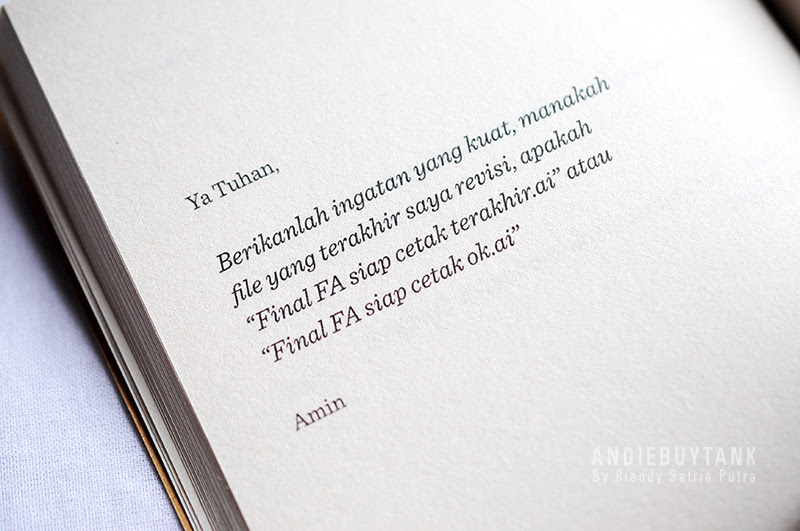 Ya Tuhan,
Berikanlah ingatan yang kuat, manakah
file yang terakhir saya revisi, apakah
“Final FA siap cetak terakhir.ai” atau
“Final FA siap cetak ok.ai”
Amin
ANDIEBUYTANK
By Riandy Satria Putra